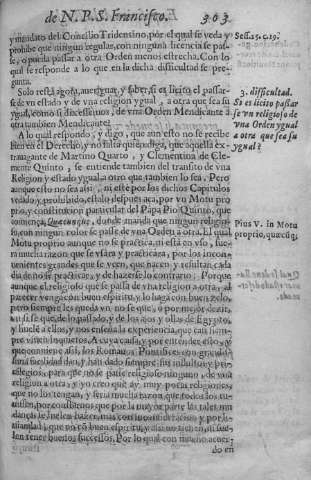 de N. P. S. Francisco. 303
y mandato del Concilio Tridentino, por el qual se veda y
prohibe que ningun regular, con ninguna licencia se passe,
o pueda passar a otra Orden menos estrecha. Con lo
qual se responde a lo que en la dicha dificultad se pregunta.
Solo resta agora, averiguar, y saber, si es licito el passarse
de vn estado y de vna religion ygual, a otra que sea su
ygual, como si dixessemos, de vna Orden Mendicante à
otra tambien Mendicante?
A lo qual respondo, y digo, que aun esto no se recibe
bien en el Derecho, y no falta quien diga, que aquella extrauagante
de Martino Quarto, y Clementina de Clemente
Quinto, se entiende tambien del transito de vna
Religion y estado ygual a otro que tambien lo sea. Pero
aunque esto no sea assi, ni esté por los dichos Capitulos
vedado, y prohibido, estalo despues aca, por vn Motu proprio,
y constitucion particular del Papa Pio Quinto, que
comiença, donde manda que ningun religioso
con ningun color se passe de vna Orden a otra. El qual
Motu proprio aunque no se practica, ni está en vso, fuera
mucha razon que se vsára y practicára, por los inconuenientes
grandes que se veen, que nacen y resultan cada
dia, de no se practicar, y de hazerse lo contrario. Porque
aunque el religioso que se passa de vna religion a otra, al
parecer venga con buen espiritu, y lo haga con buen zelo,
pero siempre les queda vn no se que, o por mejor dezir,
vn si se que, de lo passado, y de los ajos y ollas de Egypto,
y huele a ellos, y nos enseña la experiencia, que casi siempre
viuen inquietos. A cuya causa, y por entender esto, y
que conuiene assi, los Romanos Pontifices con grandissima
facilidad dan, y han dado siempre, sus indultos y priuilegios,
para que no se passe religioso ninguno, de vna
religion a otra, y yo creo que ay muy pocas religiones,
que no los tengan, y seria mucha razon que todos los tuuiessen,
por los que por la mayor parte las tales mudanças
se hazen, mas con y por liuiandad,
que no cõ buen espiritu, y no suelen
tener buenos sucessos. Por lo qual con mucho acuerdo
en
Sess. 25. c. 19.
3. difficultad.
Si es licito passar
se vn religioso de
vna Orden ygual
a otra que sea su
ygual?
Pius V. in Motu
proprio,